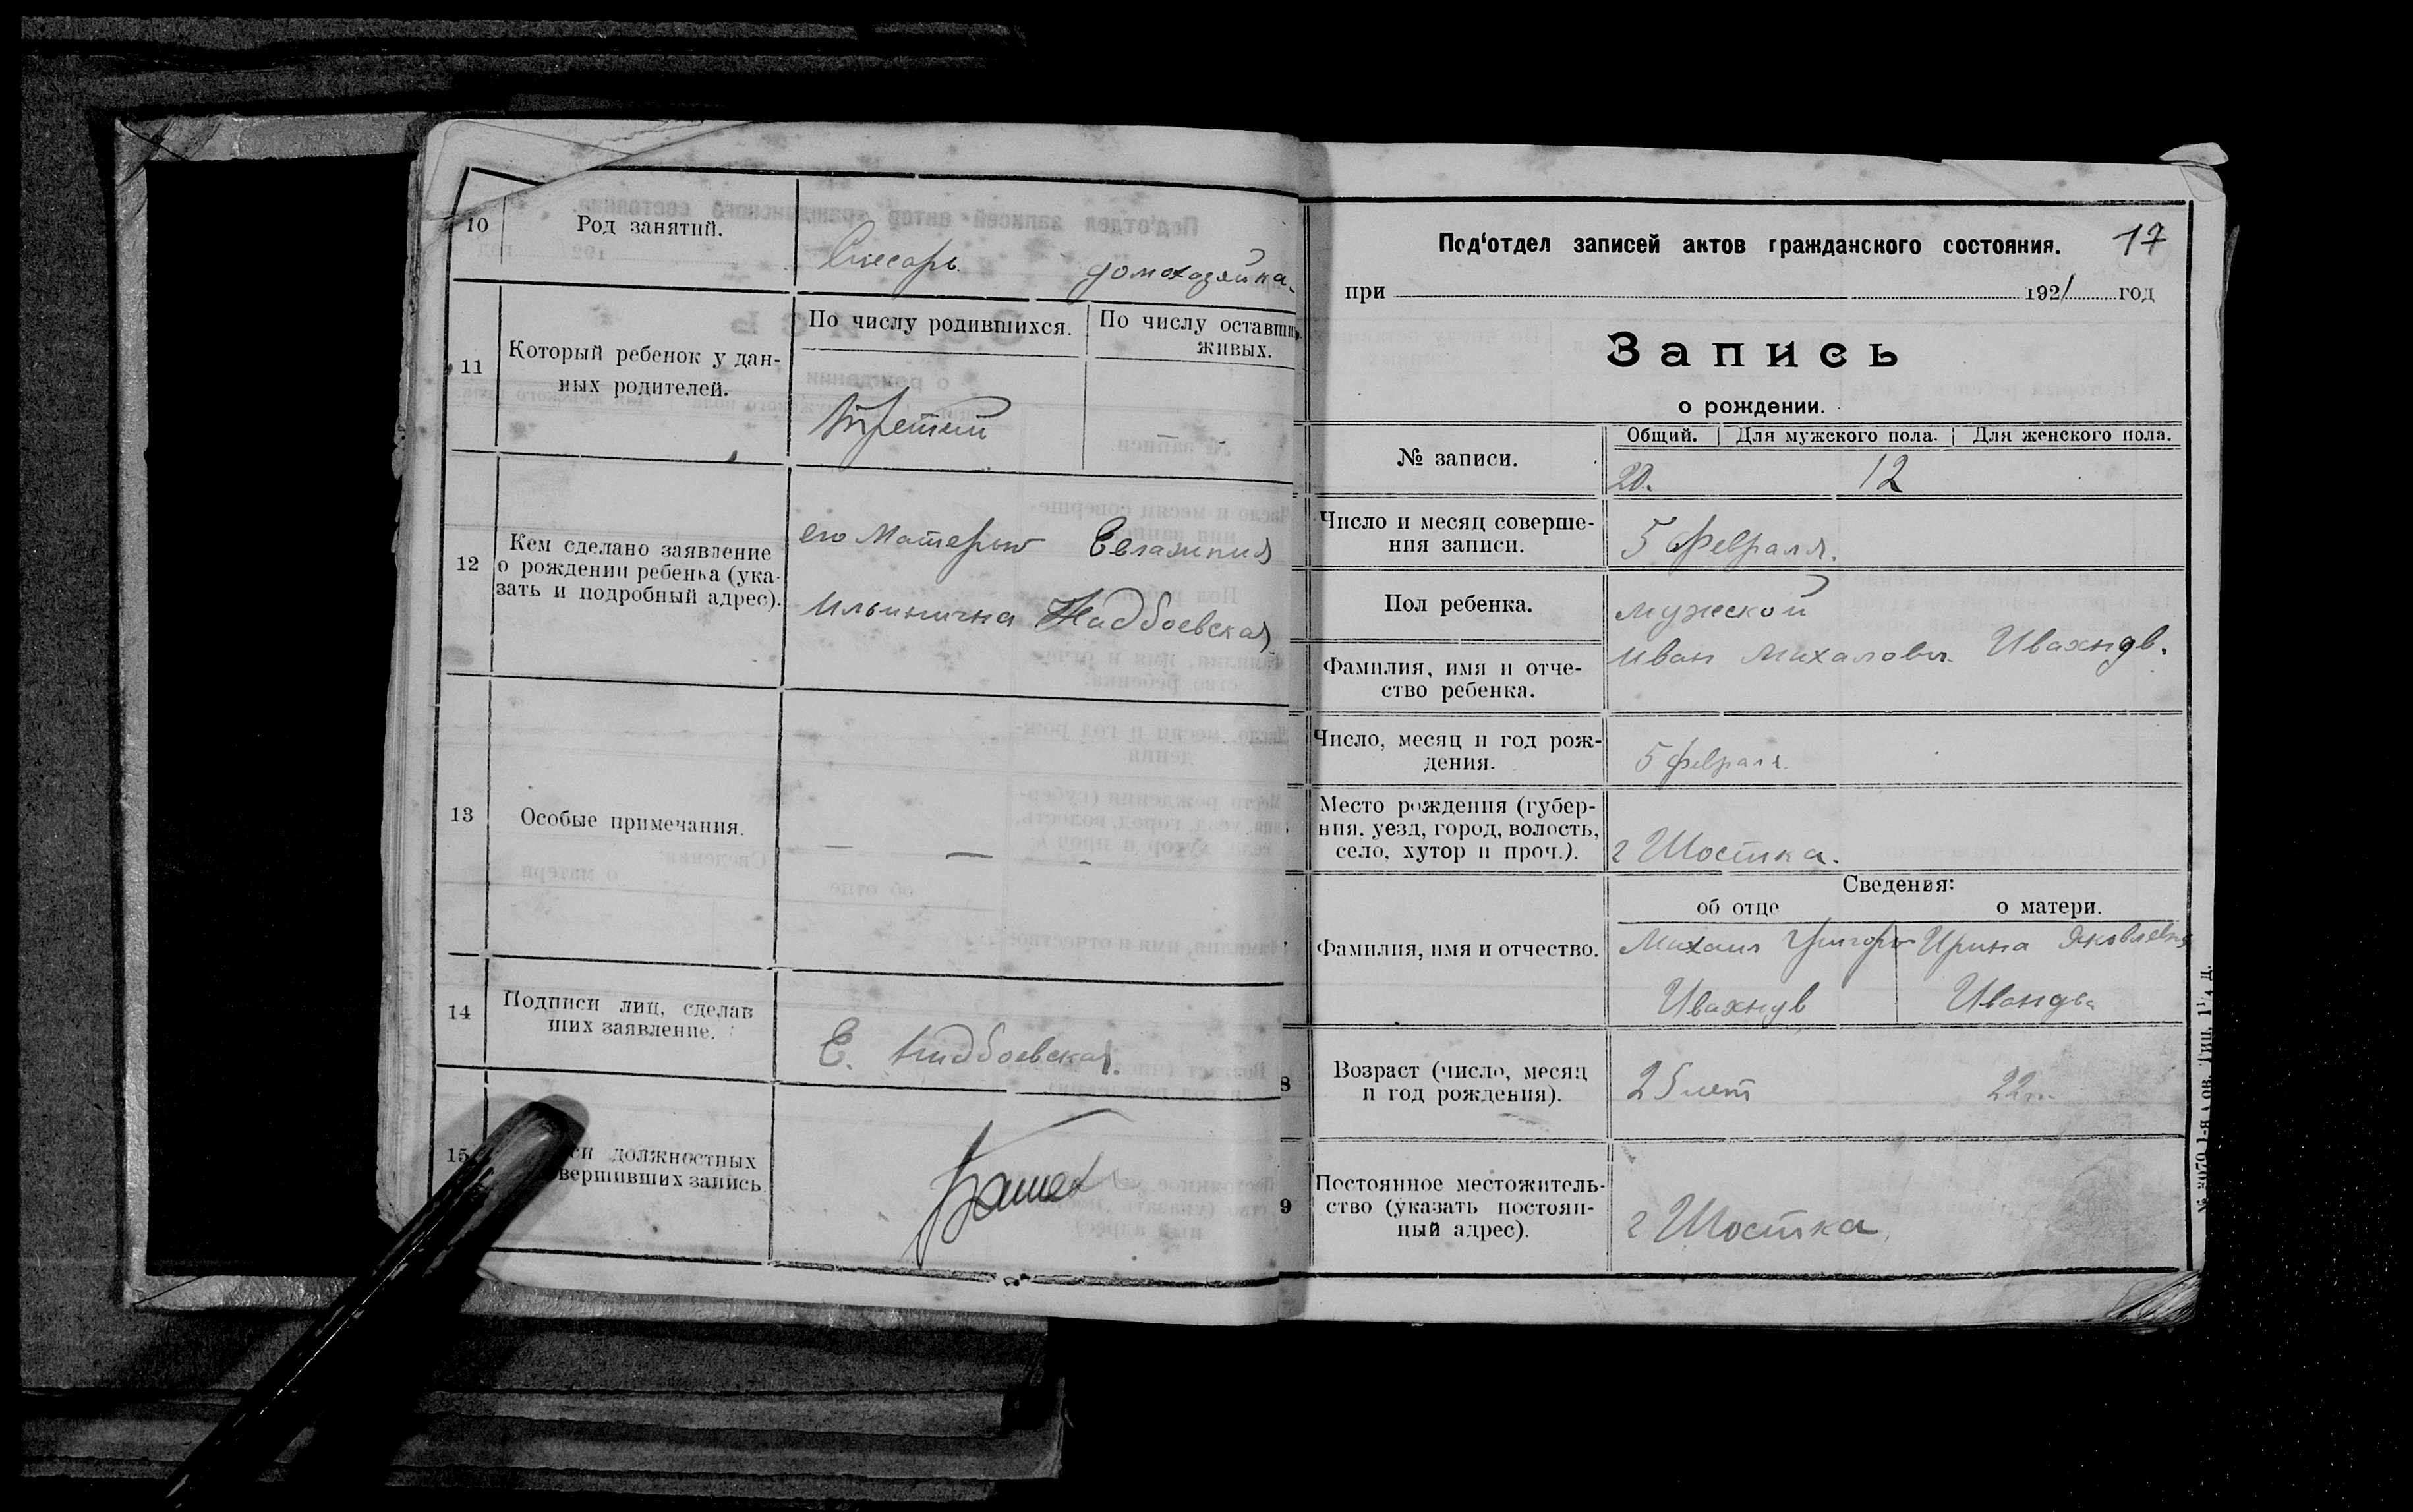 10
Род занятий.
Слесарь. домохозяйка.
11
Который ребенок у дан-
ных родителей.
По числу родившихся.
По числу оставших
живых.
Третий
— -
12
Кем сделано заявление
о рождении ребенка (ука-
зать и подробный адрес).
его Матерью Евлампия
Ильинична
13
Особые примечания.
— — -
14
Подписи лиц, сделав
ших заявление.
Е.
15
си должностных
вершивших запись.
17
Под'отдел записей актов гражданского состояния.
при 1921 год
Запись
о рождении.
№ записи.
Общий. Для мужского пола. Для женского пола.
20. 12
Число и месяц соверше-
ния записи.
5 февраля.
Пол ребенка.
мужеской
Фамилия, имя и отче-
ство ребенка.
Иван Михалович.
Число, месяц и год рож-
дения.
5 февраля.
Место рождения (губер-
ния, уезд, город, волость,
село, хутор и проч.).
г Шостка.
Сведения:
об отце о матери.
Фамилия, имя и отчество.
Михаил Григорь
Ирина Яковлевна
8
Возраст (число, месяц
и год рождения).
25 лет
22
9
Постоянное местожитель-
ство (указать постоян-
ный адрес).
г Шостка